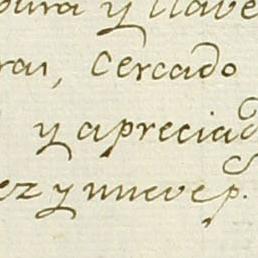 y llave
ras, Cercado
y apreciad
ez y nueve p.